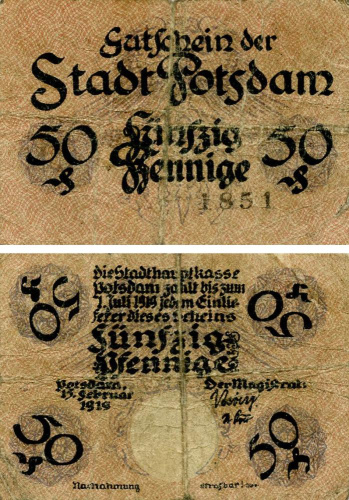 Gutschein der
Stadt Potsdam
50 Fünfzig 50
₰ Pfennige ₰
1851
Die Stadthauptkasse
Potsdam zahlt bis zum
1. Juli 1919 jedem Einlie-
ferer dieses Scheins
50 ₰ Fünfzig 50 ₰
Pfennige
Potsdam, Der Magistrat
15. Februar
1919
50 ₰ 50 ₰
Nachahmung strafbar